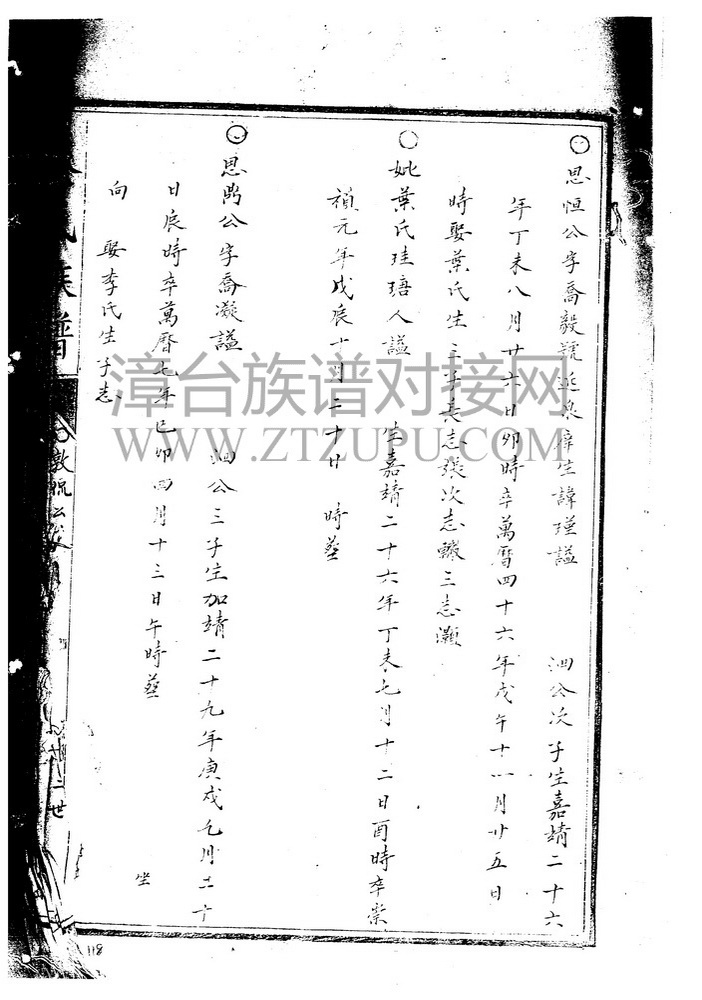 ○思恒公字喬毅號 泉庠生諱瑾謚 泗公次子生嘉靖二十六
年丁未八月廿六日卯時卒萬曆四十六年戊午十 月廿五日
時娶葉氏生三子長志張次志轍三志灝
○妣葉氏 人謚 生嘉靖二十六年丁未七月十二日酉時卒崇
禎元年戊辰十月二十廿 時葬
○思 公字喬凝謚 泗公三子生加靖二十九年庚戌七月二十
日辰時卒萬曆七年己卯四月十三日午時葬 坐
向 娶李氏生子志
族譜
二世
118
漳台族谱对接网
WWW.ZTZUPU.COM